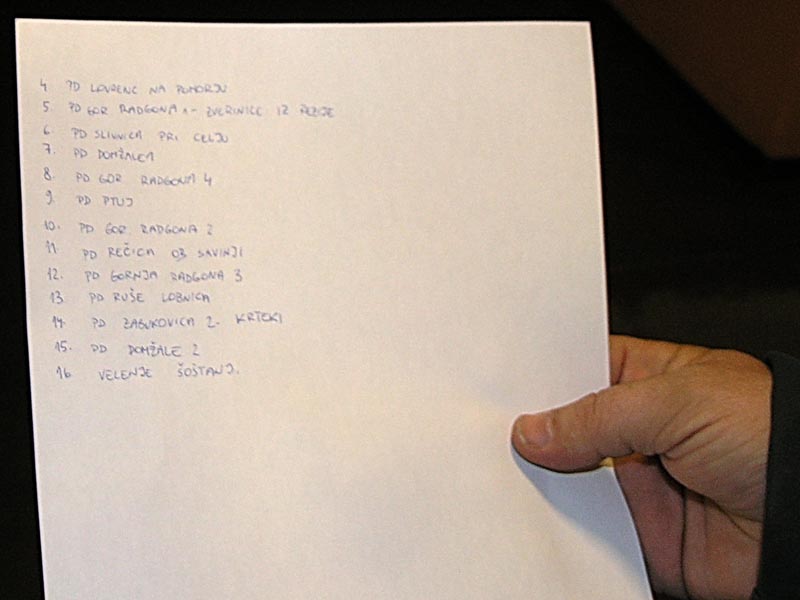 4. PD LOVRENC NA POHORJU
5. PD GOR RADGONA 1 - ZVERINICE IZ REZIJE
6. PD SLIVNICA PRI CELJU
7. PD DOMŽALE 1
8. PD GOR RADGONA 4
9. PD PTUJ
10. PD GOR RADGONA 2
11. PD REČICA OB SAVINJI
12. PD GORNJA RADGONA 3
13. PD RUŠE LOBNICA
14. PD ZABUKOVICA 2. KRTEKI
15. PD DOMŽALE 2
16. VELENJE ŠOŠTANJ.